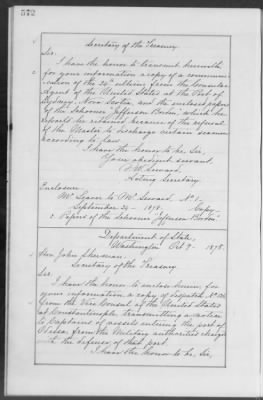 572
Secretary of the Treasury
Sir,
I have the honor to transmit herewith,
for your information a copy of a communi-
cation of the 24th ultimo, from the Consular
Agent of the United States at the Port of
Sydney, Nova Scotia, and the enclosed papers
of the Schooner "Jefferson Borden", which he
reports he retained because of the refusal
of the Master to discharge certain seamen
according to law.
I have the honor to be, Sir,
Your obedient servant,
F. W. Seward,
Acting Secretary.
Enclosure.
Mr. to Mr. Seward, No. 1,
September 24, 1878. Copy.
Papers of the Schooner "Jefferson Borden"
Department of State,
Washington Oct 9 1878.
Hon. John Sherman,
Secretary of the Treasury
Sir,
I have the honor to enclose herewith for
your information, a copy of despatch No.
from the Vice Consul of the United States
at Constantinople, transmitting a notice
to Captains of vessels entering the port of
Odessa, from the Military authorities charged
with the defense of that port.
I have the honor to be, Sir,